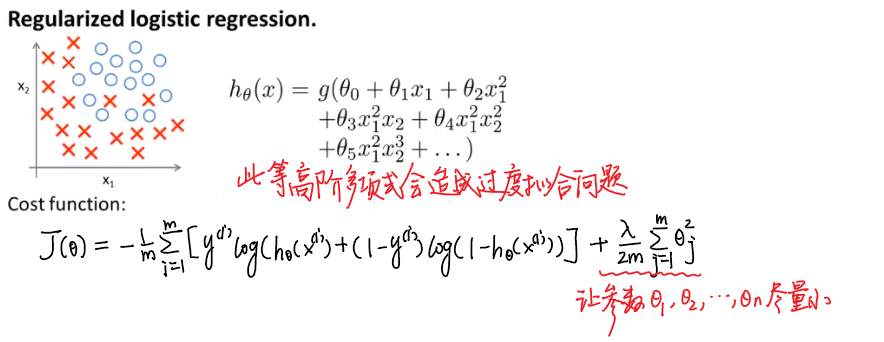 Regularized logistic regression.
x₂
x₁
h_θ(x) = g(θ₀ + θ₁x₁ + θ₂x₁²
+θ₃x₁²x₂ + θ₄x₁²x₂²
+θ₅x₁²x₂³ + …)
此等高阶多项式会造成过度拟合问题
Cost function:
J(θ) = -1/m Σ_{i=1}^{m} [y⁽ⁱ⁾ log(h_θ(x⁽ⁱ⁾) + (1-y⁽ⁱ⁾) log(1-h_θ(x⁽ⁱ⁾))] + λ/2m Σ_{j=1}^{m} θ_j²
让参数 θ₁, θ₂, …, θn 尽量小